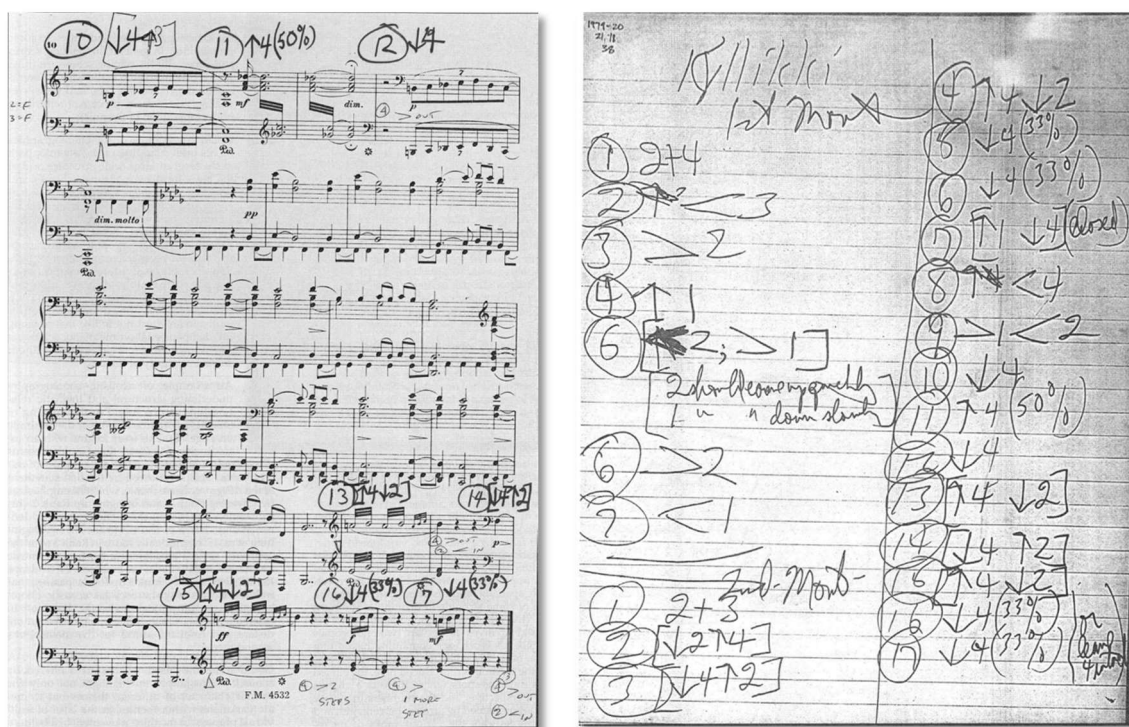 10
⑩ [↓4↑3]
⑪ ↑4(50%)
⑫ ↓4
2=F
3=F
p
mf
dim.
p
④ > OUT
Ped.
dim. molto
pp
Ped.
⑬ [↑4↓2]
⑭ [↓4↑2]
④ > OUT
② < IN
p
⑮ [↑4↓2]
⑯ ↓4(33%)
⑰ ↓4(33%)
ff
f
mf
Ped.
F.M. 4532
④ > 2
STEPS
④ >
1 MORE
STEP
④ > OUT
② < IN
1979-20
38
Kyllikki
1st Movt
① 2+4
② < 3
③ > 2
④ ↑ 1
⑥ [2; > 1]
[2 should come up quickly
1 " " down slowly]
⑥ > 2
⑦ < 1
2nd Movt-
① 2+3
② [↓2↑4]
③ [↓4↑2]
④ ↑4 ↓2
⑧ ↓4 (33%)
⑥ ↓4 (33%)
⑦ [↑1 ↓4] (closed)
⑧ < 4
⑨ > 1 < 2
⑩ ↓4
⑪ ↑4 (50%)
⑫ ↓4
⑬ [↑4 ↓2]
⑭ [↓4 ↑2]
⑮ [↑4 ↓2]
⑯ ↓4 (33%)
⑰ ↓4 (33%)
(or